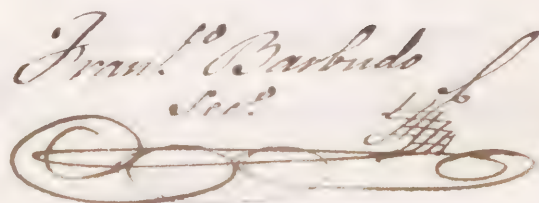 Franco. Barbudo
Srio.